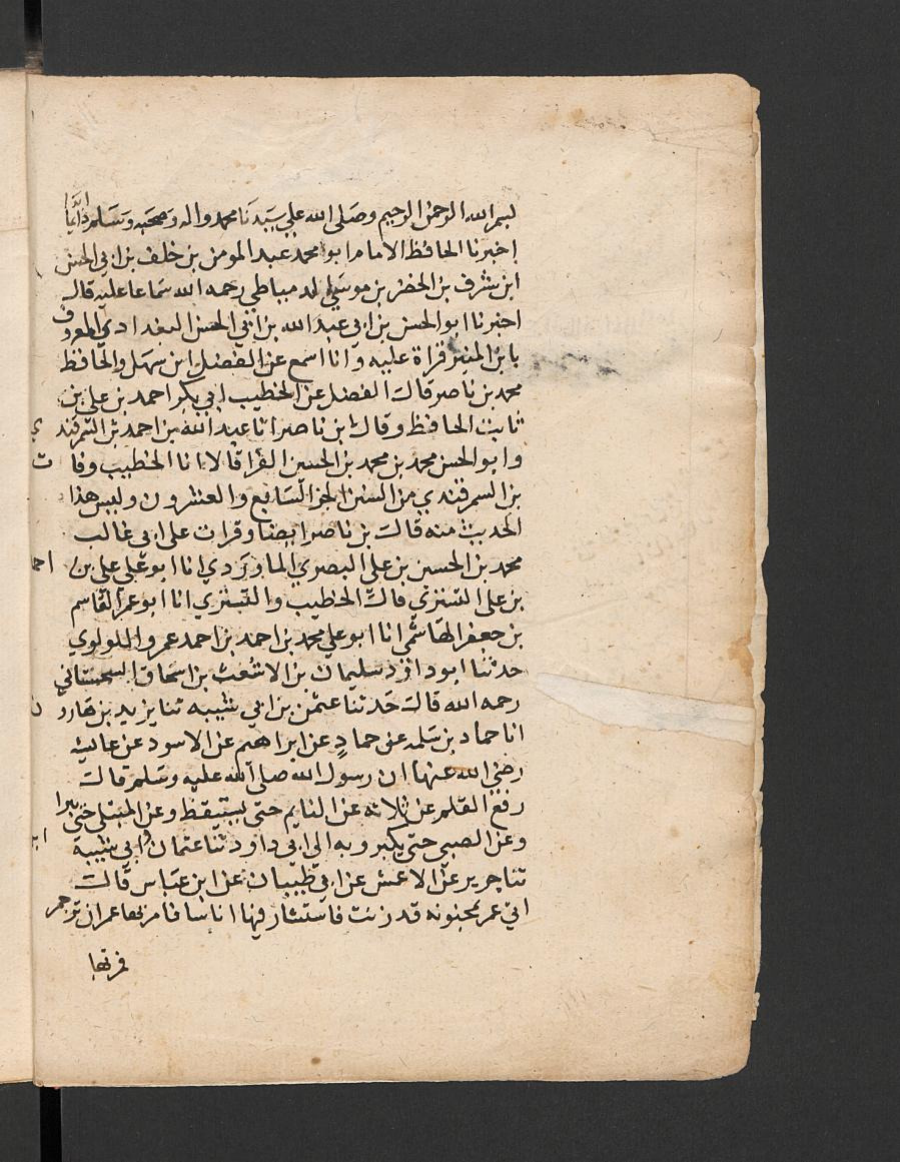 بسم الله الرحمن الرحيم وصلى الله علي سيدنا محمد واله وصحبه وسلم دايما ابدا
اخبرنا الحافظ الامام ابو محمد عبد المومن بن خلف بن ابي الحسن
ابن شرف بن الخضر بن موسي الدمياطي رحمه الله سماعا عليه قال
اخبرنا ابو الحسن بن ابي عبد الله بن ابي الحسن البغدادي المعروف
بابن المقير قراة عليه وانا اسمع عن الفضل ابن سهل والحافظ
محمد بن ناصر قال الفضل عن الخطيب ابي بكر احمد بن علي بن
ثابت الحافظ وقال بن ناصر انا عبد الله بن احمد بن السمرقندي
وابو الحسن محمد بن محمد بن الحسين الفرا قالا انا الخطيب وفات
بن السمرقندي من السنن الجز السابع والعشرون وليس هذا
الحديث منه قال بن ناصر ايضا وقرات على ابي غالب
محمد بن الحسن بن على البصري الماوردي انا ابو علي علي بن احمد
بن على التستري قال الخطيب والتستري انا ابو عمر القاسم
بن جعفر الهاشمي انا ابو علي محمد بن احمد بن احمد عمرو اللولوي
حدثنا ابو داوٰد سليمان بن الاشعث بن اسحاق السجستاني
رحمه الله قال حدثنا عثمن بن ابي شيبه ثنا يزيد بن هارون
انا حماد بن سلمه عن حمادٍ عن ابراهيم عن الاسود عن عايشه
رضي الله عنها ان رسول الله صلى الله عليه وسلم قال
رفع القلم عن ثلاثه عن النايم حتى يستيقظ وعن المبتلى حتى يبرا
وعن الصبي حتى يكبر وبه الى ابي داود ثنا عثمان ابن ابي شيبة
ثنا جرير عن الاعمش عن ابي ظبيان عن ابن عباس قال
اتي عمر بمجنونه قد زنت فاستشار فيها اناسا فامر بها عمر ان ترجم
فمر بها